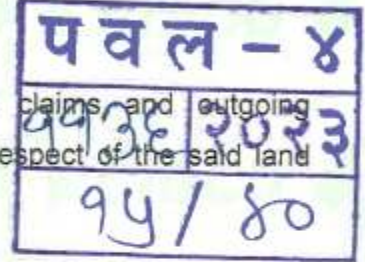 प व ल - ४
claims, and outgoing
११३६ २०२३
espect of the said land
१५ / ४०